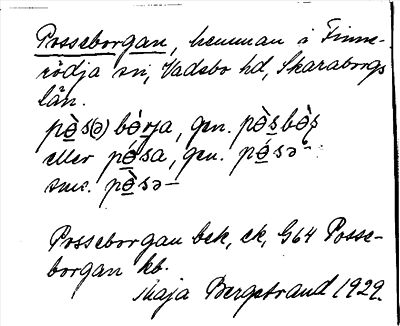 Posseborgan, hemman i Finne-
rödja sn, Vadsbo hd, Skaraborgs
län.
pə̀s(ə) bərja, gen. pə̀s bəs
eller pə́sa, gen. pə́sə-.
sms. pə̀sə-
Posseborgan bek, ek, G64 Posse-
borgan kb.
Maja Bergstrand 1929.